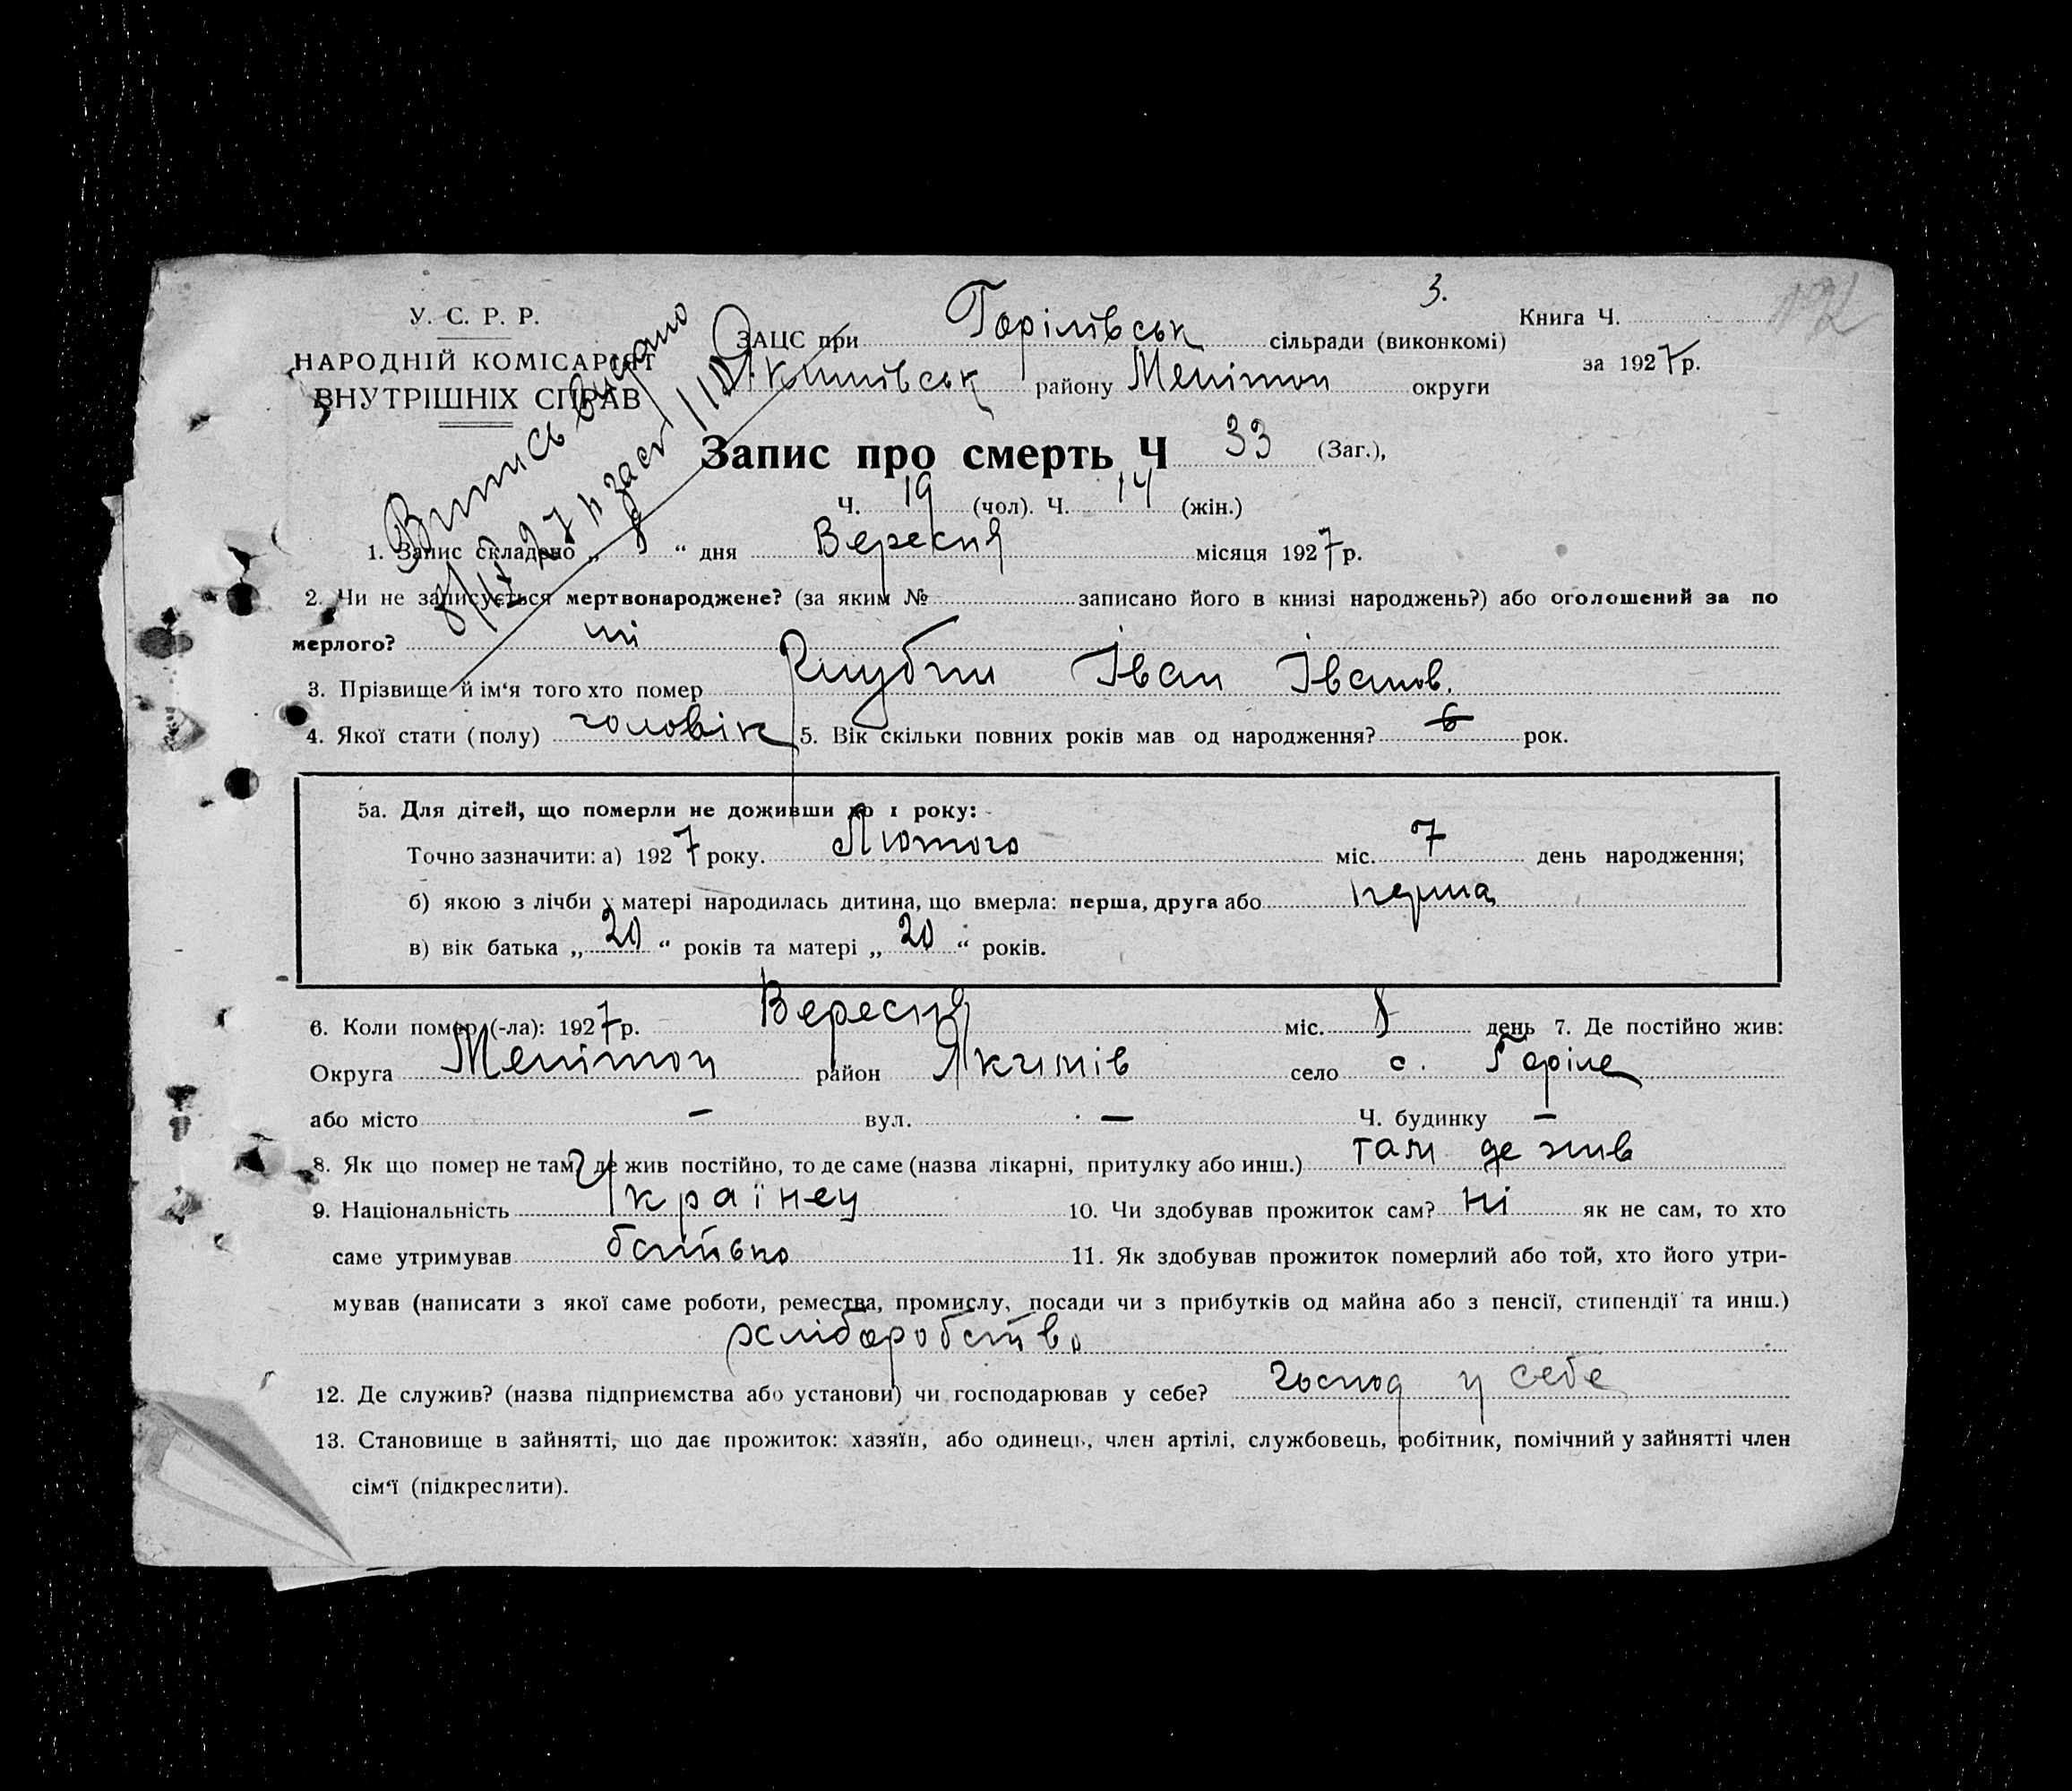 3.
У. С. Р. Р.
НАРОДНІЙ КОМІСАРІЯТ
ВНУТРІШНІХ СПРАВ
ЗАЦС при Горілівськ сільради (виконкомі)
Якимівськ району Мелітоп округи
Книга Ч.
за 1927 р.
Випись видано
8/IX 27 р
Запис про смерть Ч 33 (Заг.),
Ч. 19 (чол). Ч. 14 (жін.)
1. Запис складено „ 8 “ дня Вересня місяця 1927 р.
2. Чи не записується мертвонароджене? (за яким № записано його в книзі народжень?) або оголошений за по
мерлого? ні
3. Прізвище й ім‘я того хто помер Іван Іванов.
4. Якої стати (полу) чоловік 5. Вік скільки повних років мав од народження? 6 рок.
5а. Для дітей, що померли не доживши до 1 року:
Точно зазначити: а) 1927 року. Лютого міс. 7 день народження;
б) якою з лічби у матері народилась дитина, що вмерла: перша, друга або перша
в) вік батька „ 20 “ років та матері „ 20 “ років.
6. Коли помер (-ла): 1927 р. Вересня міс. 8 день 7. Де постійно жив:
Округа Мелітоп район Якимів село с. Горіле
або місто — вул. — Ч. будинку —
8. Як що помер не там, де жив постійно, то де саме (назва лікарні, притулку або инш.) там де жив
9. Національність Українец 10. Чи здобував прожиток сам? Ні як не сам, то хто
саме утримував батько 11. Як здобував прожиток померлий або той, хто його утри-
мував (написати з якої саме роботи, ремества, промислу, посади чи з прибутків од майна або з пенсії, стипендії та инш.)
хліборобство
12. Де служив? (назва підприємства або установи) чи господарював у себе? господ у себе
13. Становище в зайнятті, що дає прожиток: хазяїн, або одинець, член артілі, службовець, робітник, помічний у зайнятті член
сім‘ї (підкреслити).